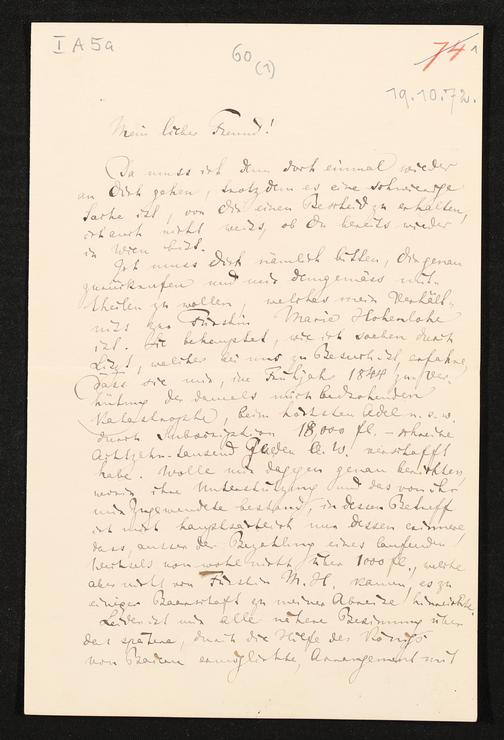 I A 5a
60
(1)
74 1
19.10.72.
Mein lieber Freund!
Da muss ich denn doch einmal wieder
an Dich gehen, trotzdem es eine schwierige
Sache ist, von Dir einen Bescheid zu erhalten,
ich auch nicht weiss, ob Du bereits wieder
in Wien bist.
Ich muss Dich nämlich bitten, Dir genau
zurückrufen und mir demgemäss mit-
theilen zu wollen, welches mein Verhält-
niss zur Fürstin Marie Hohenlohe
ist. Sie behauptet, wie ich soeben durch
Liszt, welcher bei uns zu Besuch ist, erfahre,
dass sie mir, im Frühjahr 1864 zur Ver-
hütung der damals mich bedrohenden
Katastrophe, beim höchsten Adel u. s. w.
durch Subscription 18,000 fl. – schreibe
Achtzehn-tausend Gulden Ö. W. verschafft
habe. Wolle mir dagegen genau berichten,
worin ihre Unterstützung und das von ihr
mir Zugewendete bestand, in dessen Betreff
ich mich hauptsächlich nur dessen erinnere
dass, ausser der Bezahlung eines laufenden
Wechsels von wohl nicht über 1000 fl., welche
aber nicht von Fürstin M. H. kamen, es zu
einiger Baarschaft zu meiner Abreise hinreichte.
Leider ist mir alle nähere Besinnung über
das spätere, durch die Hilfe des Königs
von Baiern ermöglichte, Arrangement mit